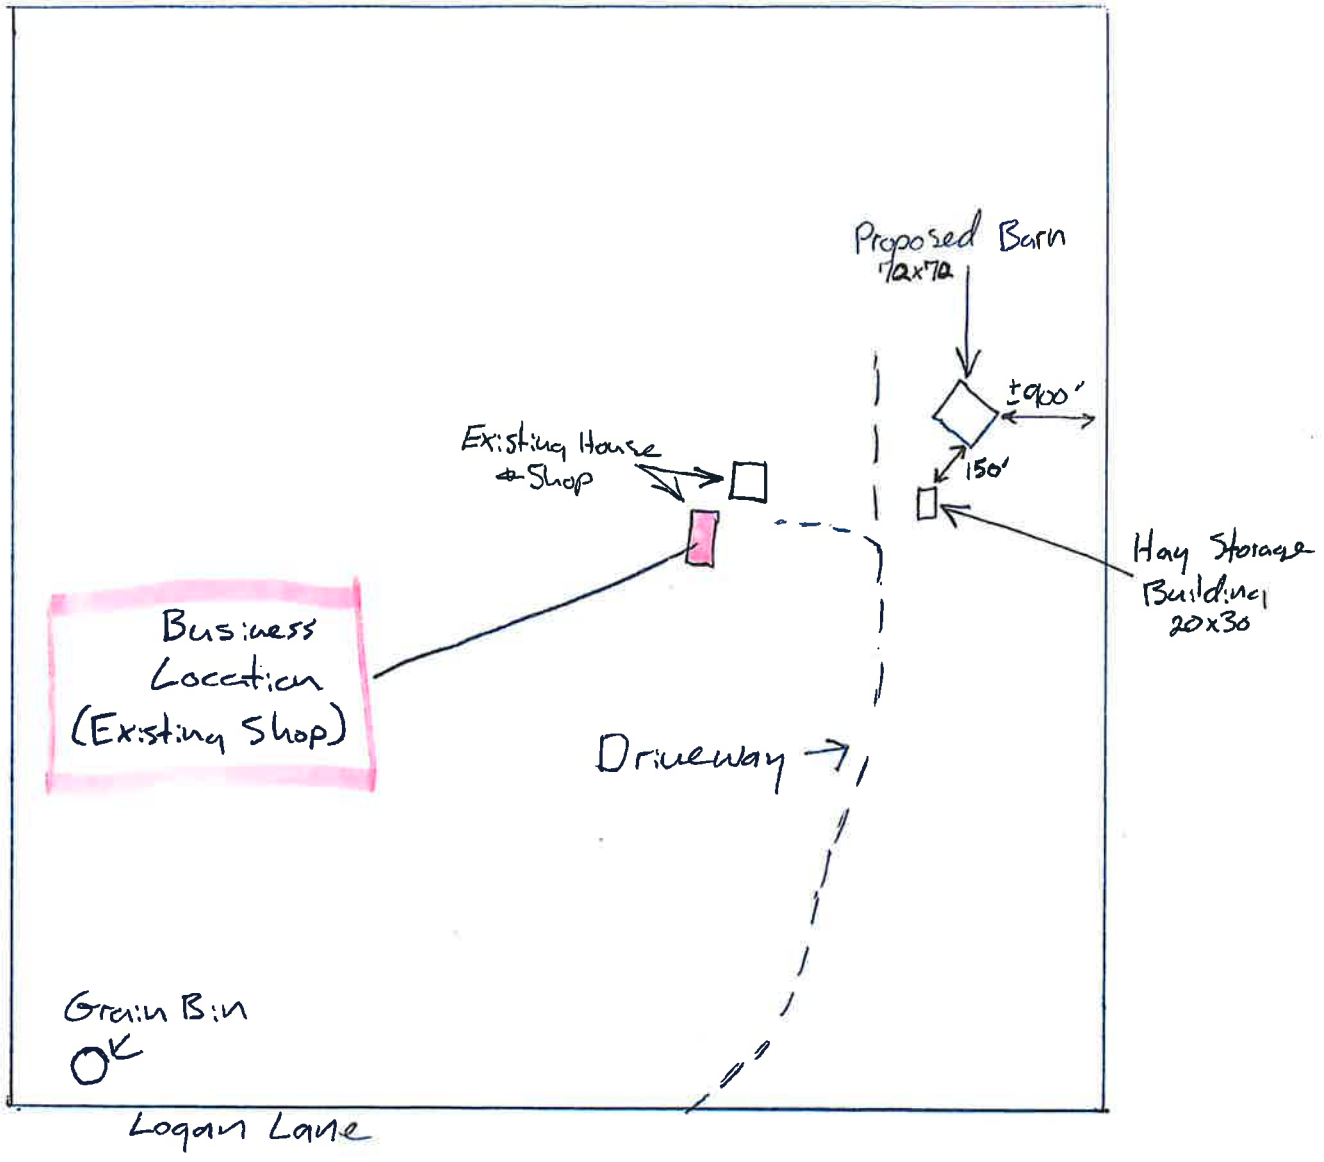 Proposed Barn
72x72
±900'
Existing House
& Shop
150'
Hay Storage
Building
20x30
Business
Location
(Existing Shop)
Driveway
Grain Bin
Logan Lane